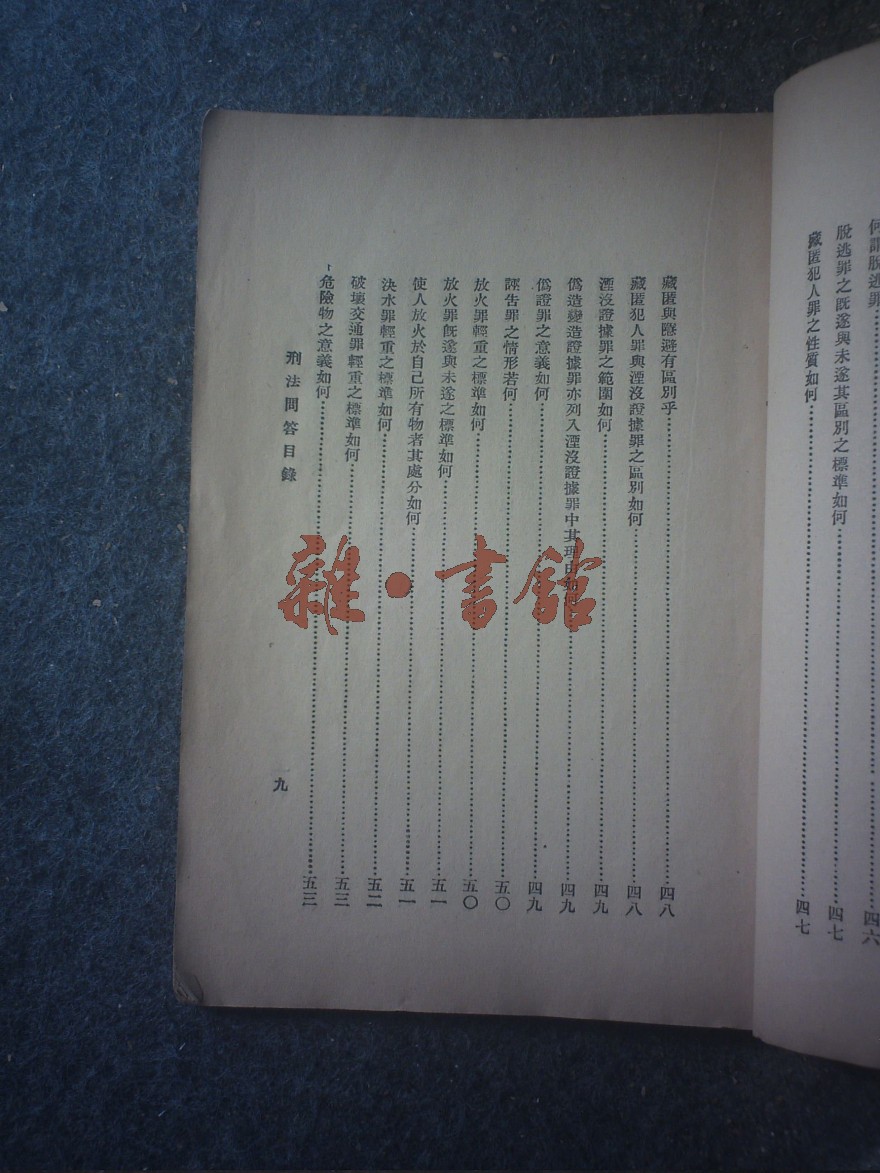 脫逃罪之旣遂與未遂其區別之標準如何……四七
藏匿犯人罪之性質如何……四七
藏匿與隱避有區別乎……四八
藏匿犯人罪與湮沒證據罪之區別如何……四八
湮沒證據罪之範圍如何……四九
僞造變造證據罪亦列入湮沒證據罪中其理由如何……四九
僞證罪之意義如何……四九
誣吿罪之情形若何……五〇
放火罪輕重之標準如何……五〇
放火罪旣遂與未遂之標準如何……五一
使人放火於自己所有物者其處分如何……五一
決水罪輕重之標準如何……五二
破壞交通罪輕重之標準如何……五三
危險物之意義如何……五三
刑法問答目錄
九
雜·書館